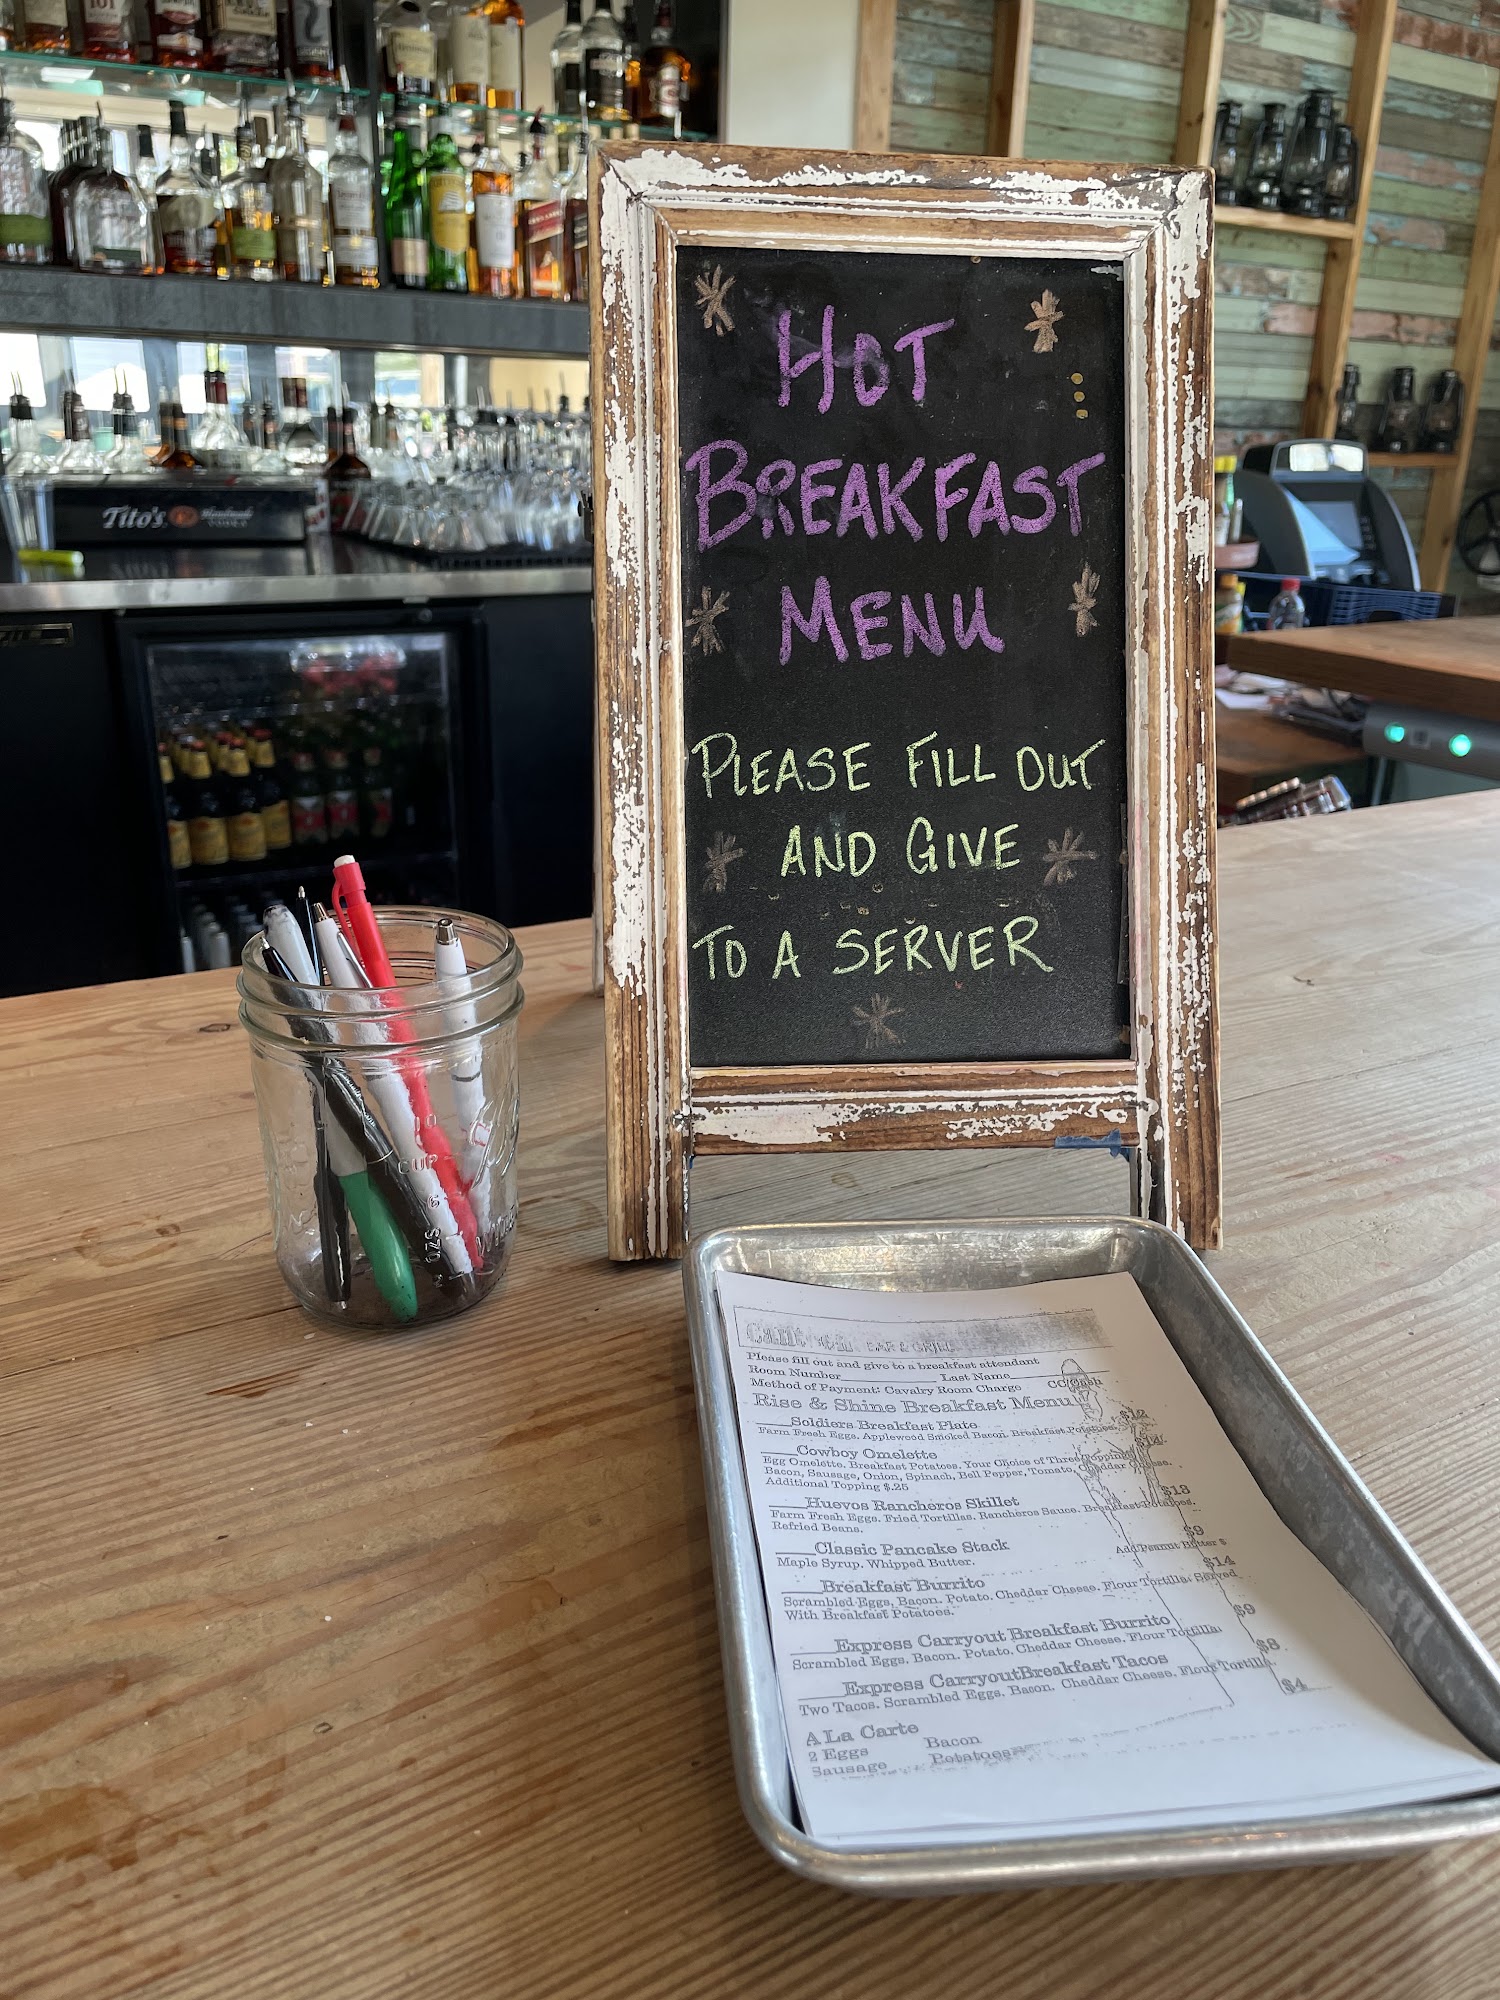 HOT
BREAKFAST
MENU
PLEASE FILL OUT
AND GIVE
TO A SERVER
Tito's Handmade
VODKA
BAR & GRILL
Please fill out and give to a breakfast attendant
Room Number Last Name
Method of Payment: Cavalry Room Charge CC/Cash
Rise & Shine Breakfast Menu
Soldiers Breakfast Plate $12
Farm Fresh Eggs, Applewood Smoked Bacon, Breakfast Potatoes.
Cowboy Omelette
Egg Omelette, Breakfast Potatoes, Your Choice of Three Toppings
Bacon, Sausage, Onion, Spinach, Bell Pepper, Tomato, Cheddar Cheese.
Additional Topping $.25
Huevos Rancheros Skillet $13
Farm Fresh Eggs, Fried Tortillas, Rancheros Sauce, Breakfast Potatoes,
Refried Beans.
Classic Pancake Stack $9
Maple Syrup, Whipped Butter. Add Peanut Butter $
Breakfast Burrito $14
Scrambled Eggs, Bacon, Potato, Cheddar Cheese, Flour Tortilla. Served
With Breakfast Potatoes.
Express Carryout Breakfast Burrito $9
Scrambled Eggs, Bacon, Potato, Cheddar Cheese, Flour Tortilla.
Express CarryoutBreakfast Tacos $8
Two Tacos, Scrambled Eggs, Bacon, Cheddar Cheese, Flour Tortilla.
A La Carte $4
2 Eggs Bacon
Sausage Potatoes
CUP
OZS